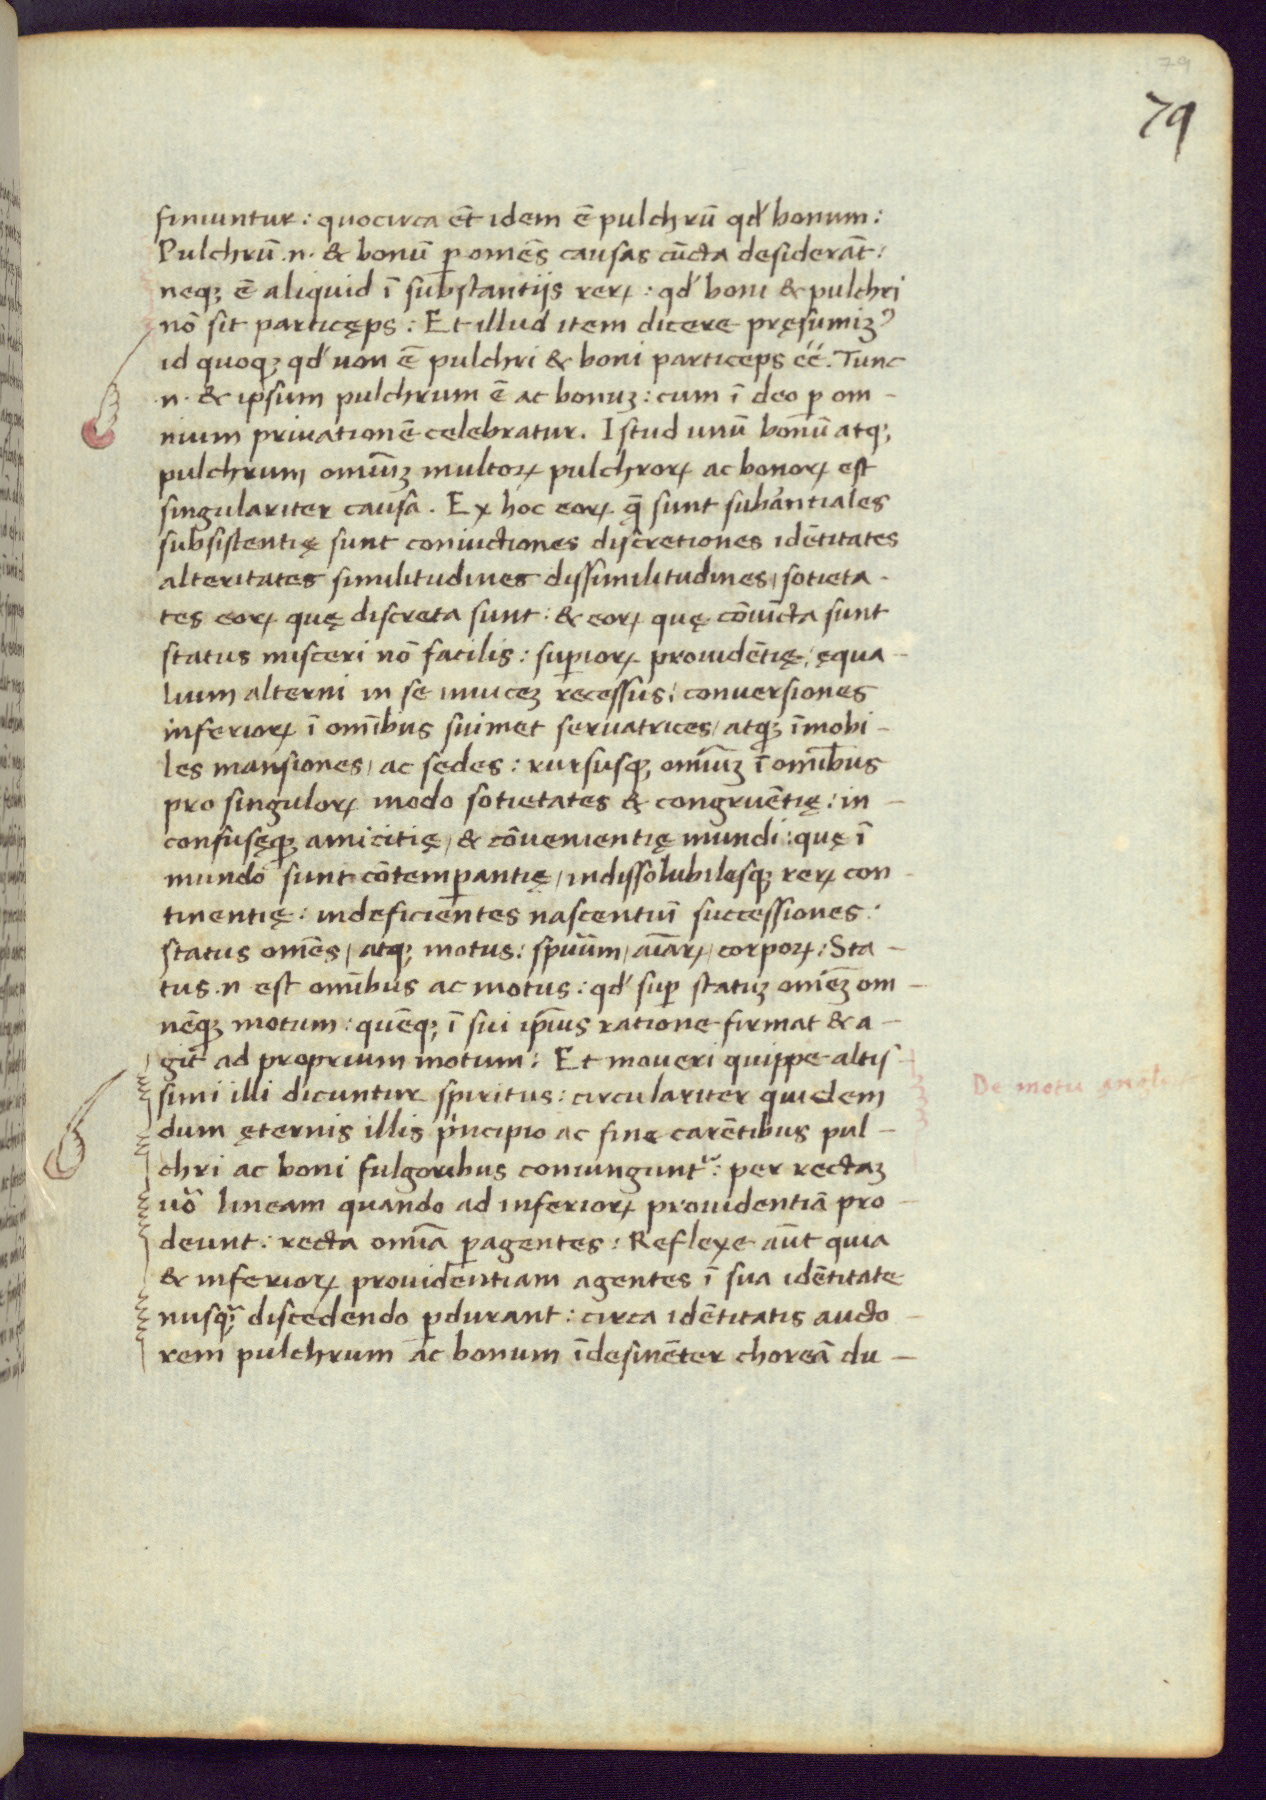 79
79
finiuntur: quocirca et̄ idem ē pulchrū qđ bonum:
Pulchrū .n. & bonū ꝑ omēs causas cūcta desiderāt:
neqꝫ ē aliquid ī substantijs reꝝ: qđ boni & pulchri
nō sit particęps: Et illud item dicere pręsumimꝰ
id quoqꝫ qđ non ē pulchri & boni particeps eē. Tunc
.n. & ipsum pulchrum ē ac bonuꝫ: cum ī deo ꝑ om-
nium priuationē celebratur. Istud unū bonū atqꝫ
pulchrum omniūꝫ multoꝝ pulchroꝝ ac bonoꝝ est
singulariter causa. Ex hoc eoꝝ que sunt subantiales
subsistentię sunt coniuctiones discretiones idētitates
alteritates similitudines dissimilitudines, sotieta-
tes eoꝝ quę discreta sunt: & eoꝝ quę cōiūcta sunt
status misceri nō facilis: suꝑioꝝ prouidētię, ęqua-
lium alterni in se inuiceꝫ recessus, conuersiones
inferioꝝ ī omībus suimet seruatrices, atqꝫ īmobi-
les mansiones, ac sedes: rursusqꝫ omīuꝫ ī omībus
pro singuloꝝ modo sotietates & congruētię: in-
confusęqꝫ amicitię, & cōuenientię mundi: quę ī
mundo sunt cōtemꝑantię, indissolubilesqꝫ reꝝ con-
tinentię: indeficientes nascentiuī successiones:
status omēs, atqꝫ motus: spūum, aīaꝝ, corpoꝝ: Sta-
tus .n est omībus ac motus: qđ suꝑ statuꝫ omēꝫ om-
nēqꝫ motum: quēqꝫ ī sui ipīus ratione firmat & a-
git ad proprium motum: Et moueri quippe altis-
simi illi dicuntur spiritus: circulariter quidem
dum ęternis illis pncipio ac fine carētibus pul-
chri ac boni fulgoribus coniungunt: per rectaꝫ
uō lineam quando ad inferioꝝ prouidentiā pro-
deunt: recta omīa ꝑagentes: Reflexe aūt quia
& inferioꝝ prouidentiam agentes ī sua idētitate
nusqꝫ discedendo ꝑdurant: circa idētitatis aucto-
rem pulchrum ac bonum īdesinēter choreā du-
De motu